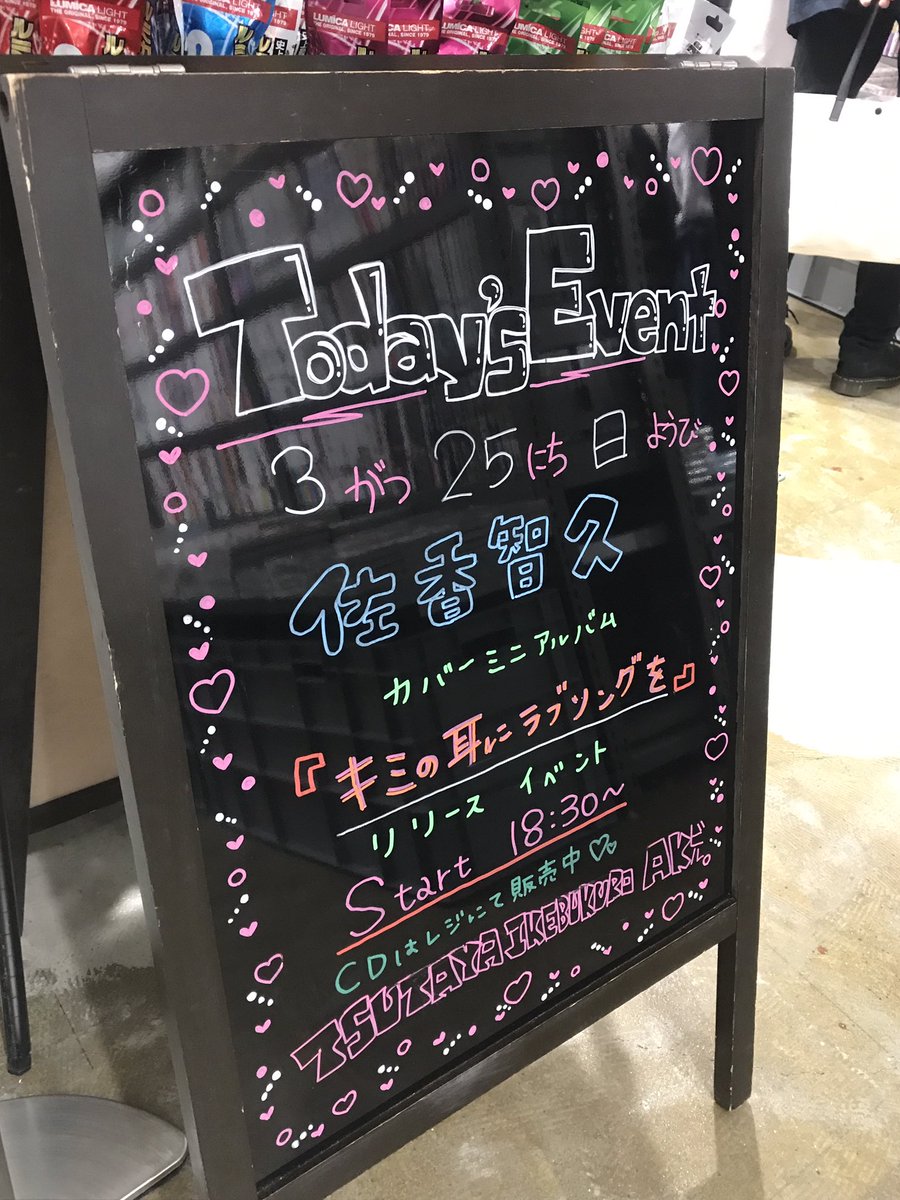 LUMICA LIGHT
THE ORIGINAL, SINCE 1979
LUMICA LIGHT
THE ORIGINAL, SINCE 1979
Today's Event
3がつ 25にち 日ようび
佐香智久
カバーミニアルバム
『キミの耳にラブソングを』
リリース イベント
Start 18:30~
CDはレジにて販売中
TSUTAYA IKEBUKURO AKビル。